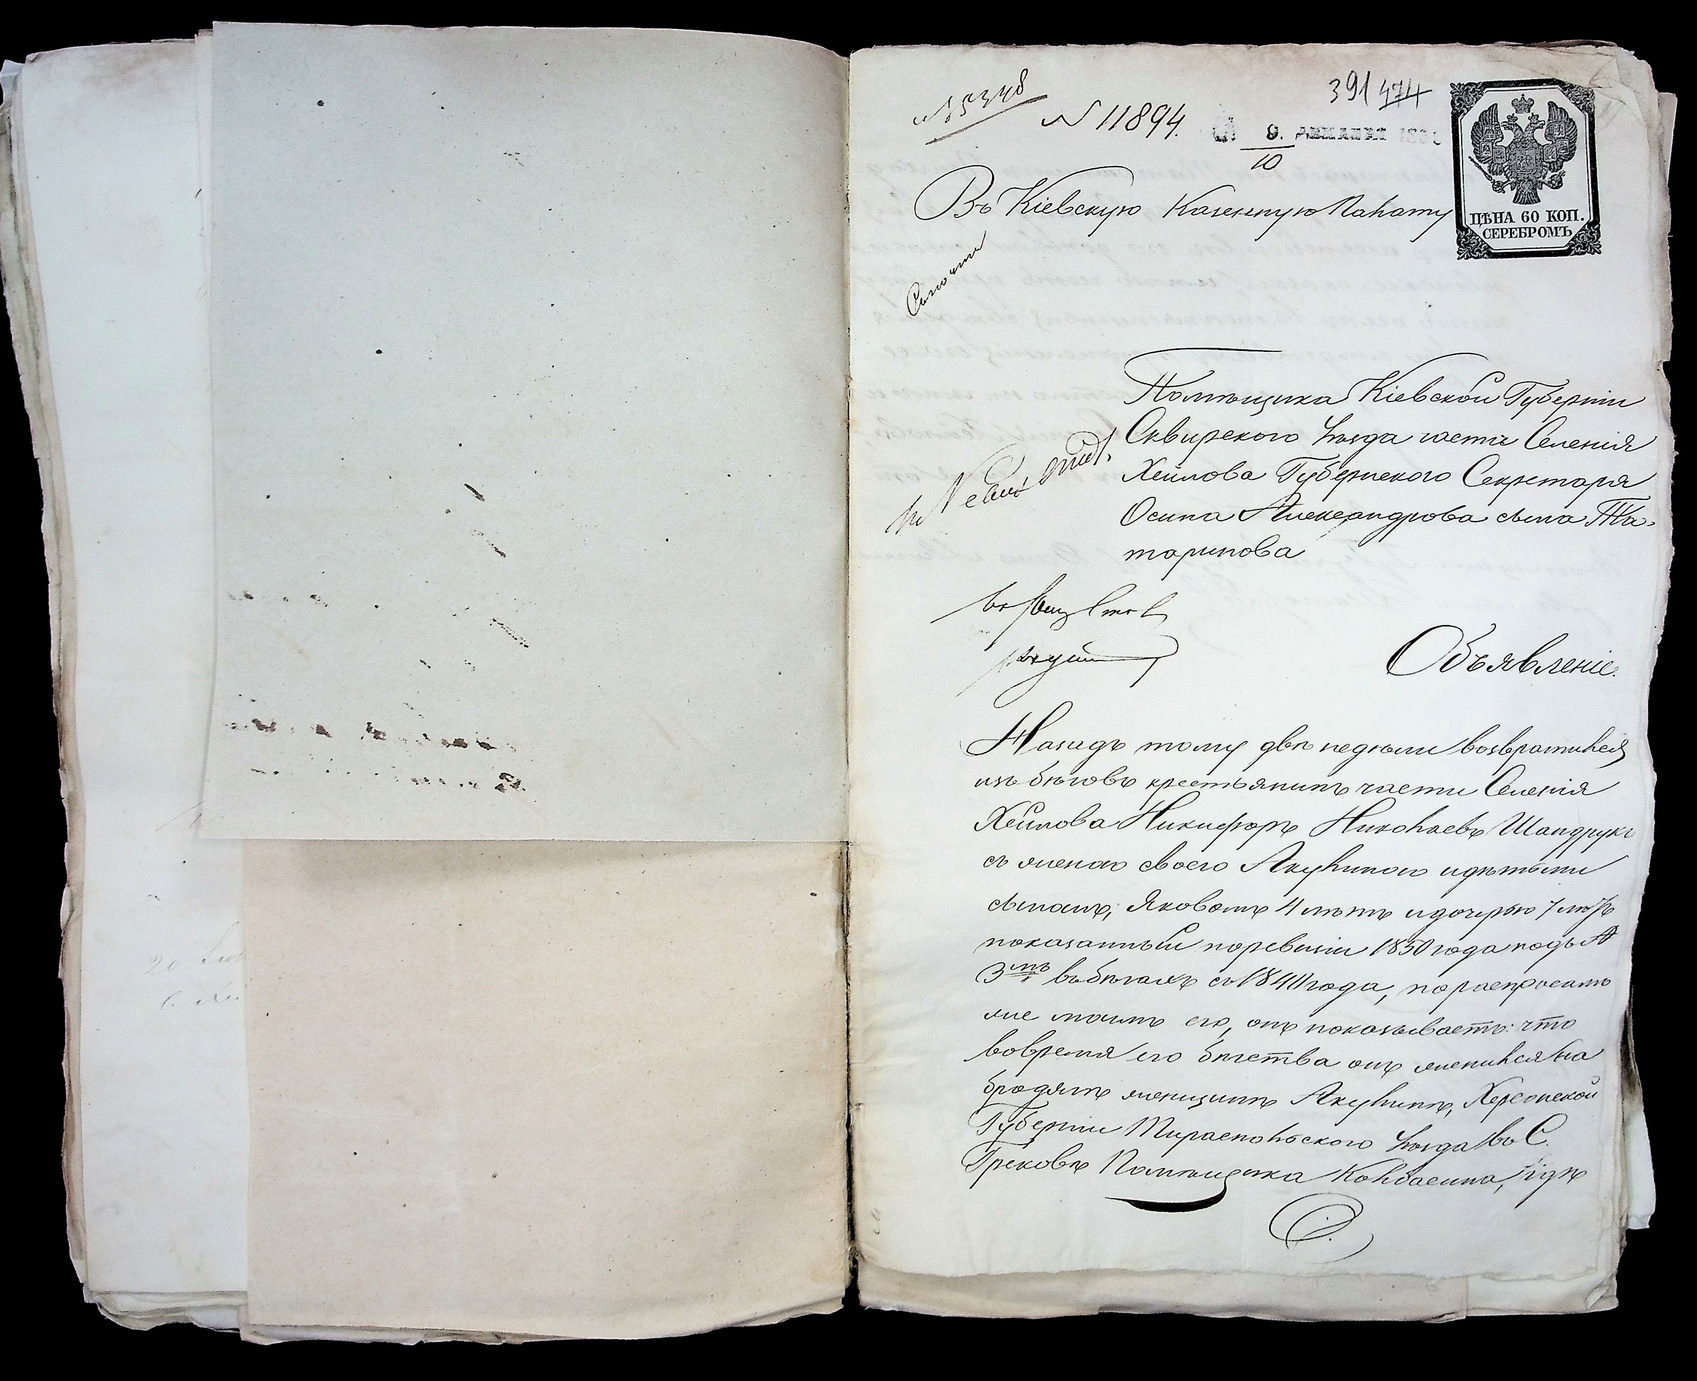 391 474
№ 11894.
9. ДЕКАБРЯ
10
ЦѢНА 60 КОП.
СЕРЕБРОМЪ
Въ Кіевскую Казенную Палату
Помѣщика Кіевской Губерніи
Сквирскаго Уѣзда части Селенія
Хейлова Губернскаго Секретаря
Осипа Александрова сына Та-
таринова
Объявленіе.
Назадъ тому двѣ недѣли возвратился
изъ бѣговъ крестьянинъ части Селенія
Хейлова Никифоръ Николаевъ Шандрукъ
съ женою своею Акулиною и дѣтьми
сыномъ, Яковомъ 4 лѣтъ и дочерью 7 лѣтъ
показанный по ревизіи 1850 года подъ №
3мъ въ бѣгахъ съ 1841 года, по распросамъ
же моимъ его, онъ показываетъ: что
вовремя его бѣгства онъ женился на
бродягѣ женщинѣ Акулинѣ, Херсонской
Губерніи Тираспольскаго Уѣзда въ С.
Грековѣ Помѣщика Колбасина, гдѣ